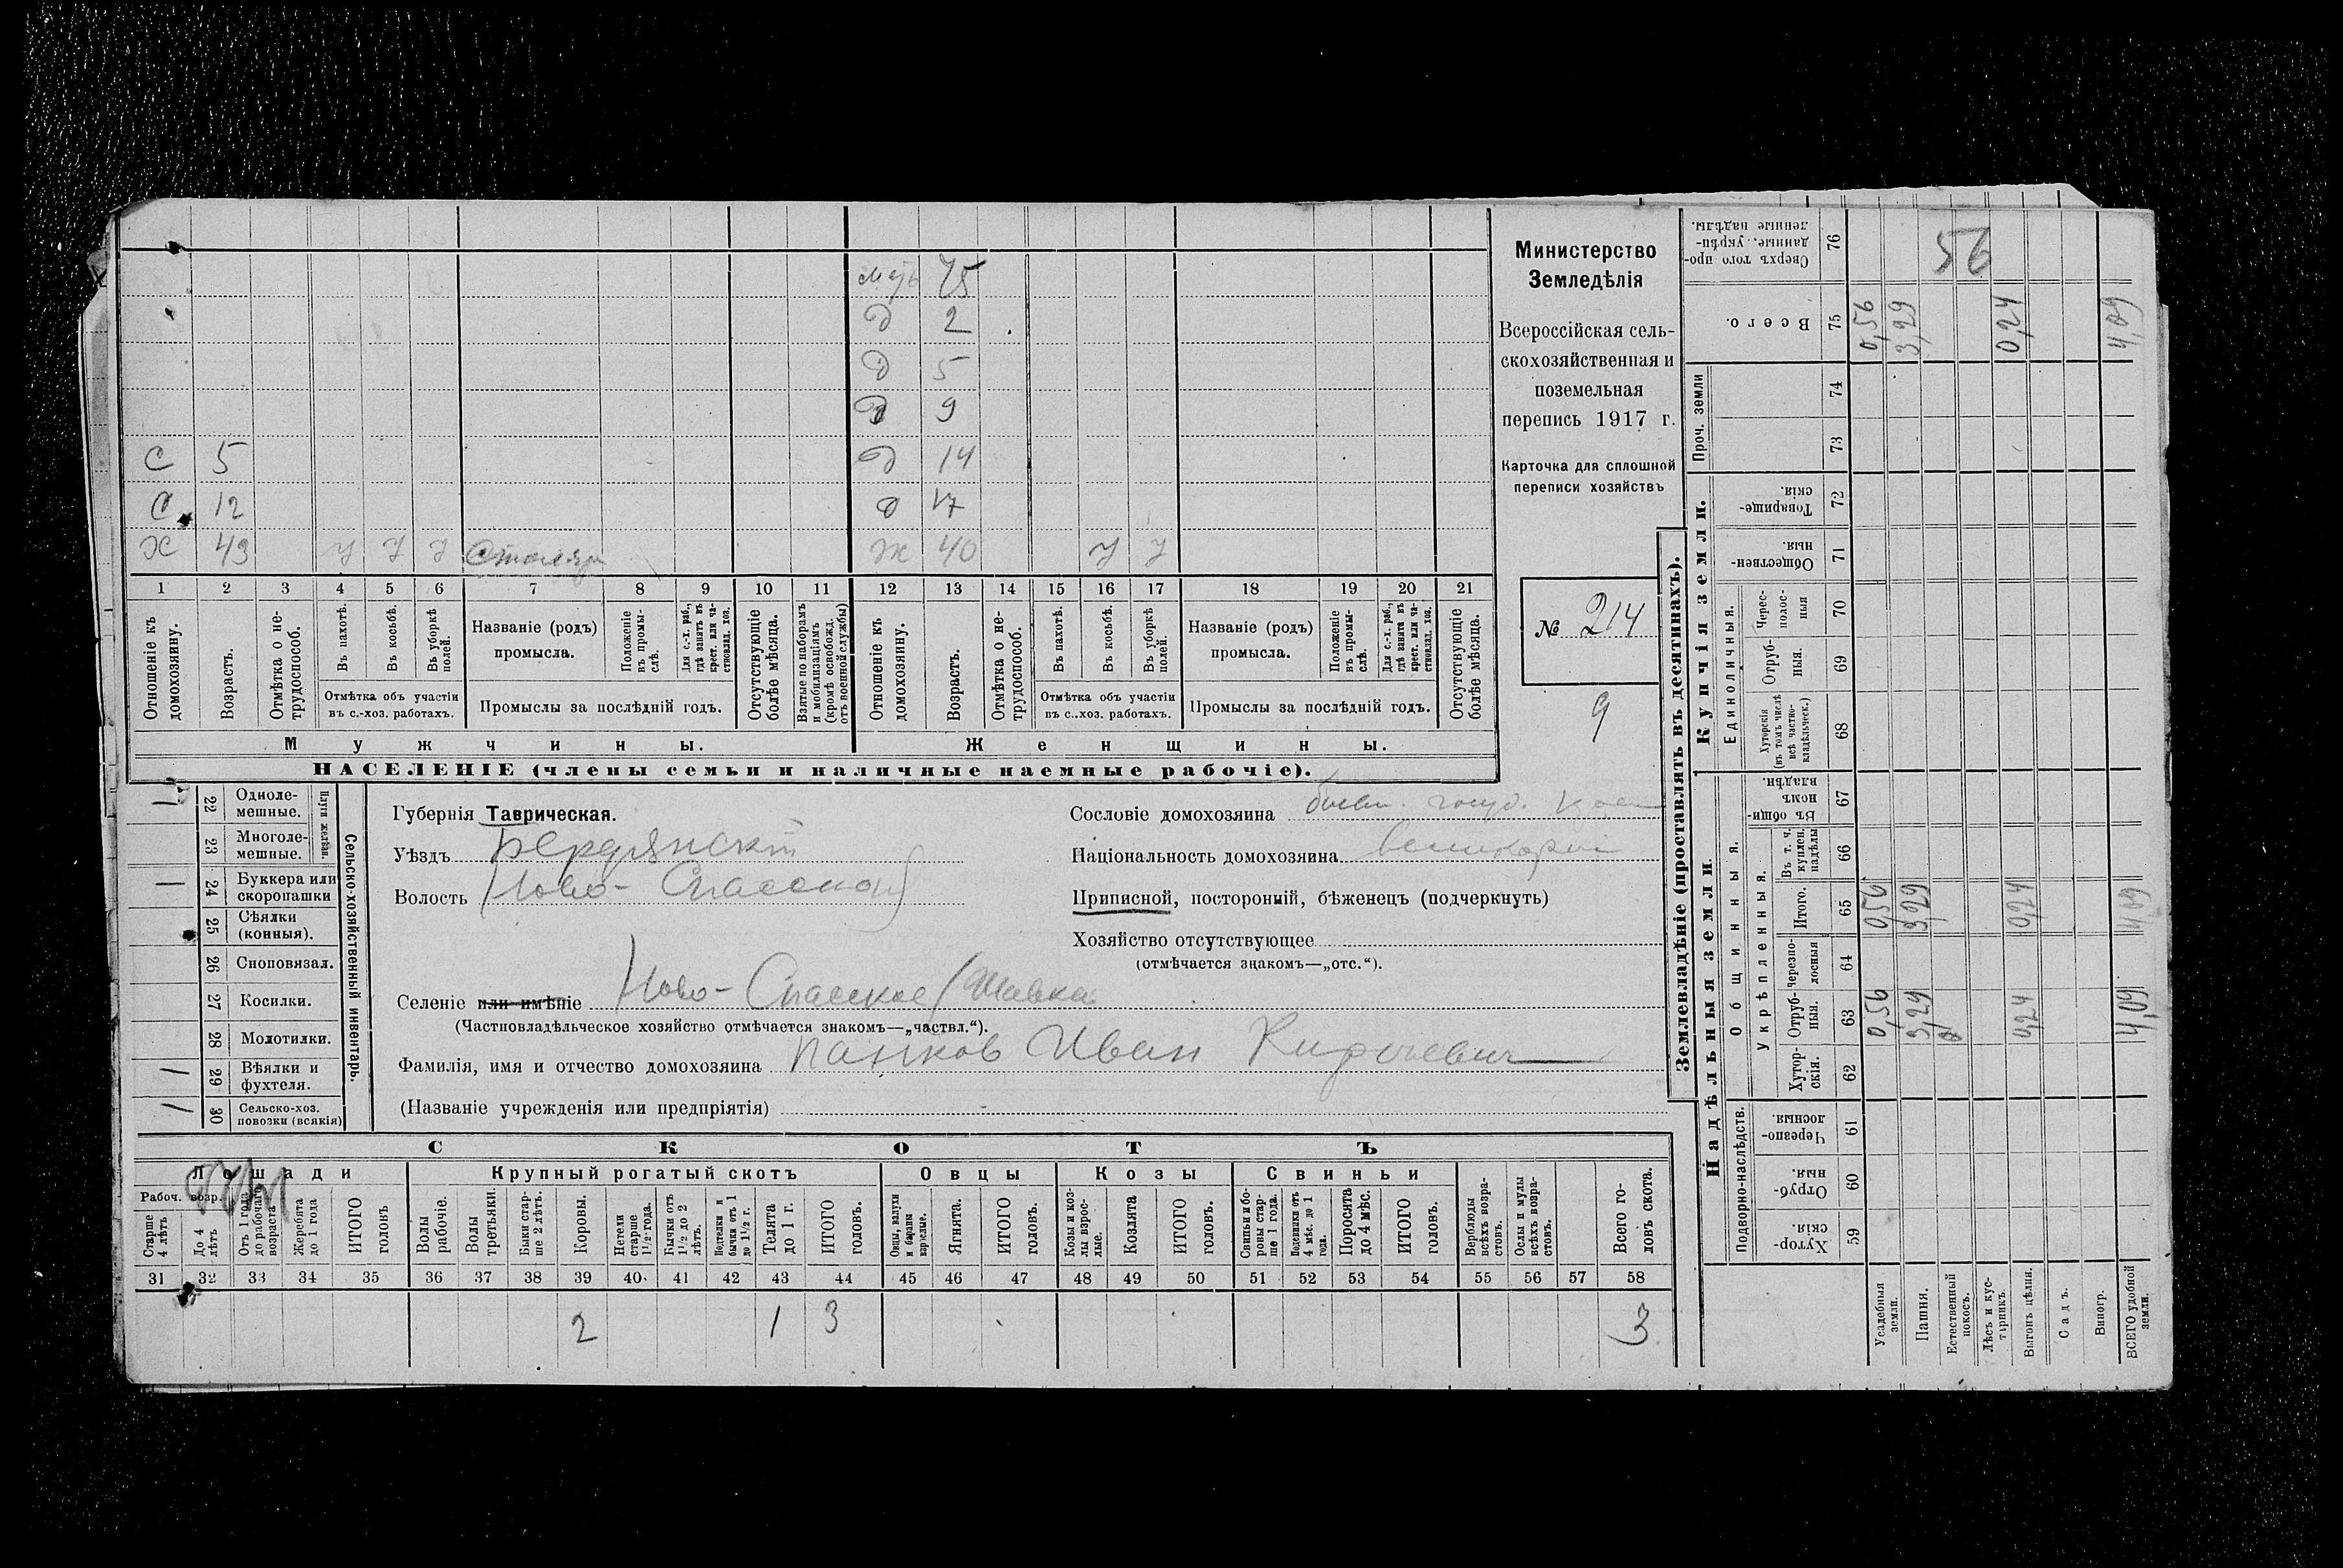 мать 75
д 2
д 5
д 9
С 5 д 14
С 12 д 17
Х 43 У У У Столяр Ж 40 У У
1 2 3 4 5 6 7 8 9 10 11 12 13 14 15 16 17 18 19 20 21
Отношеніе къ домохозяину.
Возрастъ.
Отмѣтка о не-трудоспособ.
Въ пахотѣ.
Въ косьбѣ.
Въ уборкѣ полей.
Отмѣтка объ участіи
въ с.-хоз. работахъ.
Названіе (родъ)
промысла.
Положеніе въ промы-слѣ.
Для с.-х. раб., гдѣ занятъ въ крест. или ча-стновлад. хоз.
Промыслы за послѣдній годъ.
Отсутствующіе болѣе мѣсяца.
Взятые по наборамъ и мобилизаціямъ (кромѣ освобожд. отъ военной службы)
Отношеніе къ домохозяину.
Возрастъ.
Отмѣтка о не-трудоспособ.
Въ пахотѣ.
Въ косьбѣ.
Въ уборкѣ полей.
Отмѣтка объ участіи
въ с..хоз. работахъ.
Названіе (родъ)
промысла.
Положеніе въ промы-слѣ.
Для с.-х. раб., гдѣ занята въ крест. или ча-стновлад. хоз.
Промыслы за послѣдній годъ.
Отсутствующіе болѣе мѣсяца.
Мужчины. Женщины.
НАСЕЛЕНІЕ (члены семьи и наличные наемные рабочіе).
Министерство
Земледѣлія
Всероссійская сель-
скохозяйственная и
поземельная
перепись 1917 г.
Карточка для сплошной
переписи хозяйствъ
№ 214
9
Сельско-хозяйственный инвентарь.
Плуги желѣзн.
22 Одноле-мешные.
23 Многоле-мешные.
24 Буккера или скоропашки
25 Сѣялки (конныя).
26 Сноповязал.
27 Косилки.
28 Молотилки.
29 Вѣялки и фухтеля.
30 Сельско-хоз. повозки (всякія)
Губернія Таврическая.
Уѣздъ Бердянскій
Волость Ново-Спасской
Селеніе или имѣніе Ново-Спасское
(Частновладѣльческое хозяйство отмѣчается знакомъ—„частвл.“).
Фамилія, имя и отчество домохозяина Панков Иван
(Названіе учрежденія или предпріятія)
Сословіе домохозяина
Національность домохозяина
Приписной, посторонній, бѣженец (подчеркнуть)
Хозяйство отсутствующее
(отмѣчается знакомъ—„отс.“).
СКОТЪ
Лошади Крупный рогатый скотъ Овцы Козы Свиньи
Рабоч. возр.
Старше 4 лѣтъ
До 4 лѣтъ
Отъ 1 года до рабочаго возраста
Жеребята до 1 года
ИТОГО головъ
Волы рабочіе.
Волы третьяки.
Быки стар-ше 2 лѣтъ.
Коровы.
Нетели старше 1½ года.
Бычки отъ 1½ до 2 лѣтъ.
Подтелки и бычки отъ 1 до 1½ г.
Телята до 1 г.
ИТОГО головъ.
Овцы, валухи и бараны взрослые.
Ягнята.
ИТОГО головъ.
Козы и коз-лы взрос-лые.
Козлята
ИТОГО головъ.
Свиньи и бо-ровы стар-ше 1 года.
Подсвинки отъ 4 мѣс. до 1 года.
Поросята до 4 мѣс.
ИТОГО головъ.
Верблюды всѣхъ возра-стовъ.
Ослы и мулы всѣхъ возра-стовъ.
Всего го-ловъ скота.
31 32 33 34 35 36 37 38 39 40 41 42 43 44 45 46 47 48 49 50 51 52 53 54 55 56 57 58
2 1 3 3
Землевладѣніе (проставлять въ десятинахъ).
Купчія земли.
Надѣльныя земли.
Сверхъ того про-данные, укрѣп-ленные надѣлы. 76
56
Всего. 75 0,56 3,29 0,24 4,09
Проч. земли 74 73
Товарище-скія. 72
Обществен-ныя. 71
Единоличныя.
Черес-полос-ныя 70
Отруб-ныя. 69
Хуторскія (въ томъ числѣ всѣ частно-владѣльческ.) 68
Общинныя.
Въ общин-номъ владѣн. 67
Укрѣпленныя.
Въ т. ч. куплен. надѣлы 66
Итого. 65 0,56 3,29 0,24 4,09
Черезпо-лосныя 64
Отруб-ныя. 63 0,56 3,29 0,24 4,09
Хутор-скія. 62
Подворно-наслѣдств.
Черезпо-лосныя. 61
Отруб-ныя. 60
Хутор-скія. 59
Усадебныя земли.
Пашня.
Естественный покосъ.
Лѣсъ и кус-тарникъ.
Выгонъ цѣлин.
Садъ.
Виногр.
ВСЕГО удобной земли.